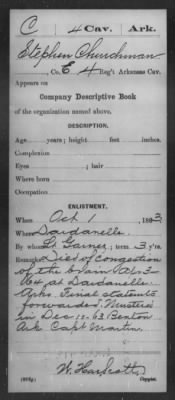 C 4 Cav. Ark.
Stephen Churchman
, Co. E, 4 Reg't Arkansas Cav.
Appears on
Company Descriptive Book
of the organization named above.
DESCRIPTION.
Age years; height feet inches.
Complexion
Eyes ; hair
Where born
Occupation
ENLISTMENT.
When Oct 1, 1863.
Where Dardanelle
By whom Lt. Garner; term 3 y'rs.
Remarks: Died of congestion
of the brain
64, at Dardanelle
Ark. Final statements
forwarded. Mustered
in Dec. 12-63 Benton
Ark Capt Martin.
Copyist.